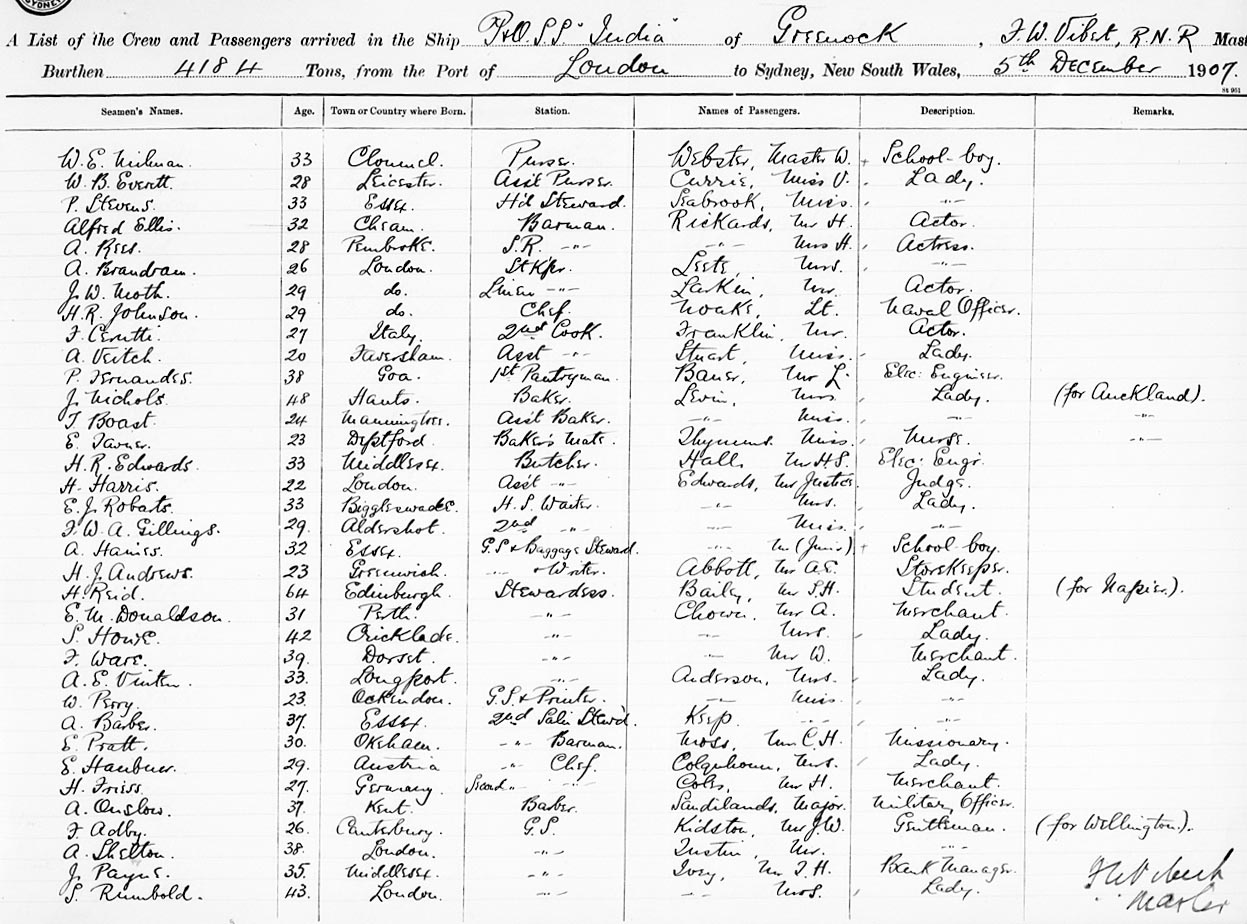 SYDNEY
A List of the Crew and Passengers arrived in the Ship P&O. S.S. "India" of Greenock, F. W. Vibst, R.N.R Mast
Burthen 4184 Tons, from the Port of London to Sydney, New South Wales, 5th December 1907.
St 951
Seamen's Names. Age. Town or Country where Born. Station. Names of Passengers. Description. Remarks.
W. E. Milman. 33 Clonmel. Purser. Webster, Master W. School-boy.
W. B. Everitt. 28 Leicester. Ass't Purser. Currie, Miss V. Lady.
P. Stevens. 33 Essex. H'd Steward. Seabrook, Miss. -"-
Alfred Ellis. 32 Cheam. Barman. Rickards, Mr H. Actor.
A. Rees. 28 Pembroke. S.R. -"- -"- Mrs H. Actress.
A. Brandram. 26 London. St Kpr. Leete, Mrs. -"-
J. W. Moth. 29 do. Linen -"- Larkin, Mr. Actor.
H. R. Johnson. 29 do. Chef. Noake, Lt. Naval Officer.
F. Cerutti. 27 Italy. 2nd Cook. Franklin, Mr. Actor.
A. Veitch. 20 Faversham. Asst -"- Stuart, Miss. Lady.
P. Fernandes. 38 Goa. 1st Pantryman. Bauer, Mr L. Elec: Engineer.
J. Nichols. 48 Hants. Baker. Levin, Mrs Lady. (for Auckland).
T. Boast. 24 Manningtree. Ass't Baker. -"- Miss. -"- -"-
E. Tavner. 23 Deptford. Baker's Mate. Thynnms. Miss. Nurse. -"-
H. R. Edwards. 33 Middlesex. Butcher. Hall, Mr H S. Elec: Engr.
H. Harris. 22 London. Ass't -"- Edwards, Mr Justice. Judge.
E. J. Roberts. 33 Biggleswade. H. S. Waiter. -"- Mrs. Lady.
F. W. A. Gillings. 29. Aldershot. 2nd -"- -"- Miss. -"-
A. Haines. 32 Essex. G.S & Baggage Steward. -"- Mr (Junr) School-boy.
H. J. Andrews. 23 Greenwich. -"- & Writer. Abbott, Mr A.E. Storekeeper.
H. Reid. 64 Edinburgh. Stewardess. Bailey, Mr S.H. Student. (for Napier.).
E. M. Donaldson. 31 Perth. -"- Chown, Mr A. Merchant.
S. Howe. 42 Cricklade. -"- -"- Mrs. Lady.
F. Ware. 39. Dorset. -"- -"- Mr W. Merchant.
A. E. Vinten. 33. Longport. -"- Anderson, Mrs. Lady.
W. Perry. 23. Ockendon. G.S. & Printer. -"- Miss. -"-
A. Barber. 37. Essex. 2nd Saln Stew'd. Keep. -"- -"-
E. Pratt. 30. Oakham. -"- Barman. Moss, Mr C.H. Missionary.
E. Haubner. 29. Austria -"- Chef. Colquhoun, Mrs. Lady.
H. Friess. 27. Germany. Second -"- -"- Coles, Mr H. Merchant.
A. Onslow. 37. Kent. Barber. Sandilands, Major. Military Officer.
F. Adby. 26. Canterbury. G.S. Kidston, Mr J.W. Gentleman. (for Wellington.).
A. Shelton. 38. London. -"- Tustin, Mr. -"-
J. Payne. 35. Middlesex. -"- Ivey, Mr T.H. Bank Manager.
S. Rumbold. 43. London. -"- -"- Mrs. Lady.
Master